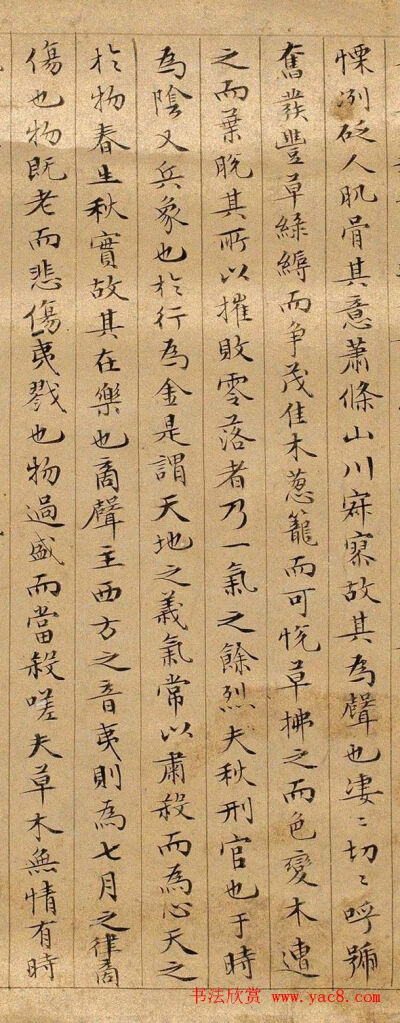 慄冽砭人肌骨其意蕭條山川寂寥故其為聲也凄〻切〻呼號
奮發豐草綠縟而爭茂佳木葱籠而可悅草拂之而色變木遭
之而葉脫其所以摧敗零落者乃一氣之餘烈夫秋刑官也于時
為陰又兵象也於行為金是謂天地之義氣常以肅殺而為心天之
於物春生秋實故其在樂也商聲主西方之音夷則為七月之律商
傷也物既老而悲傷夷戮也物過盛而當殺嗟夫草木無情有時
书法欣赏 www.yac8.com